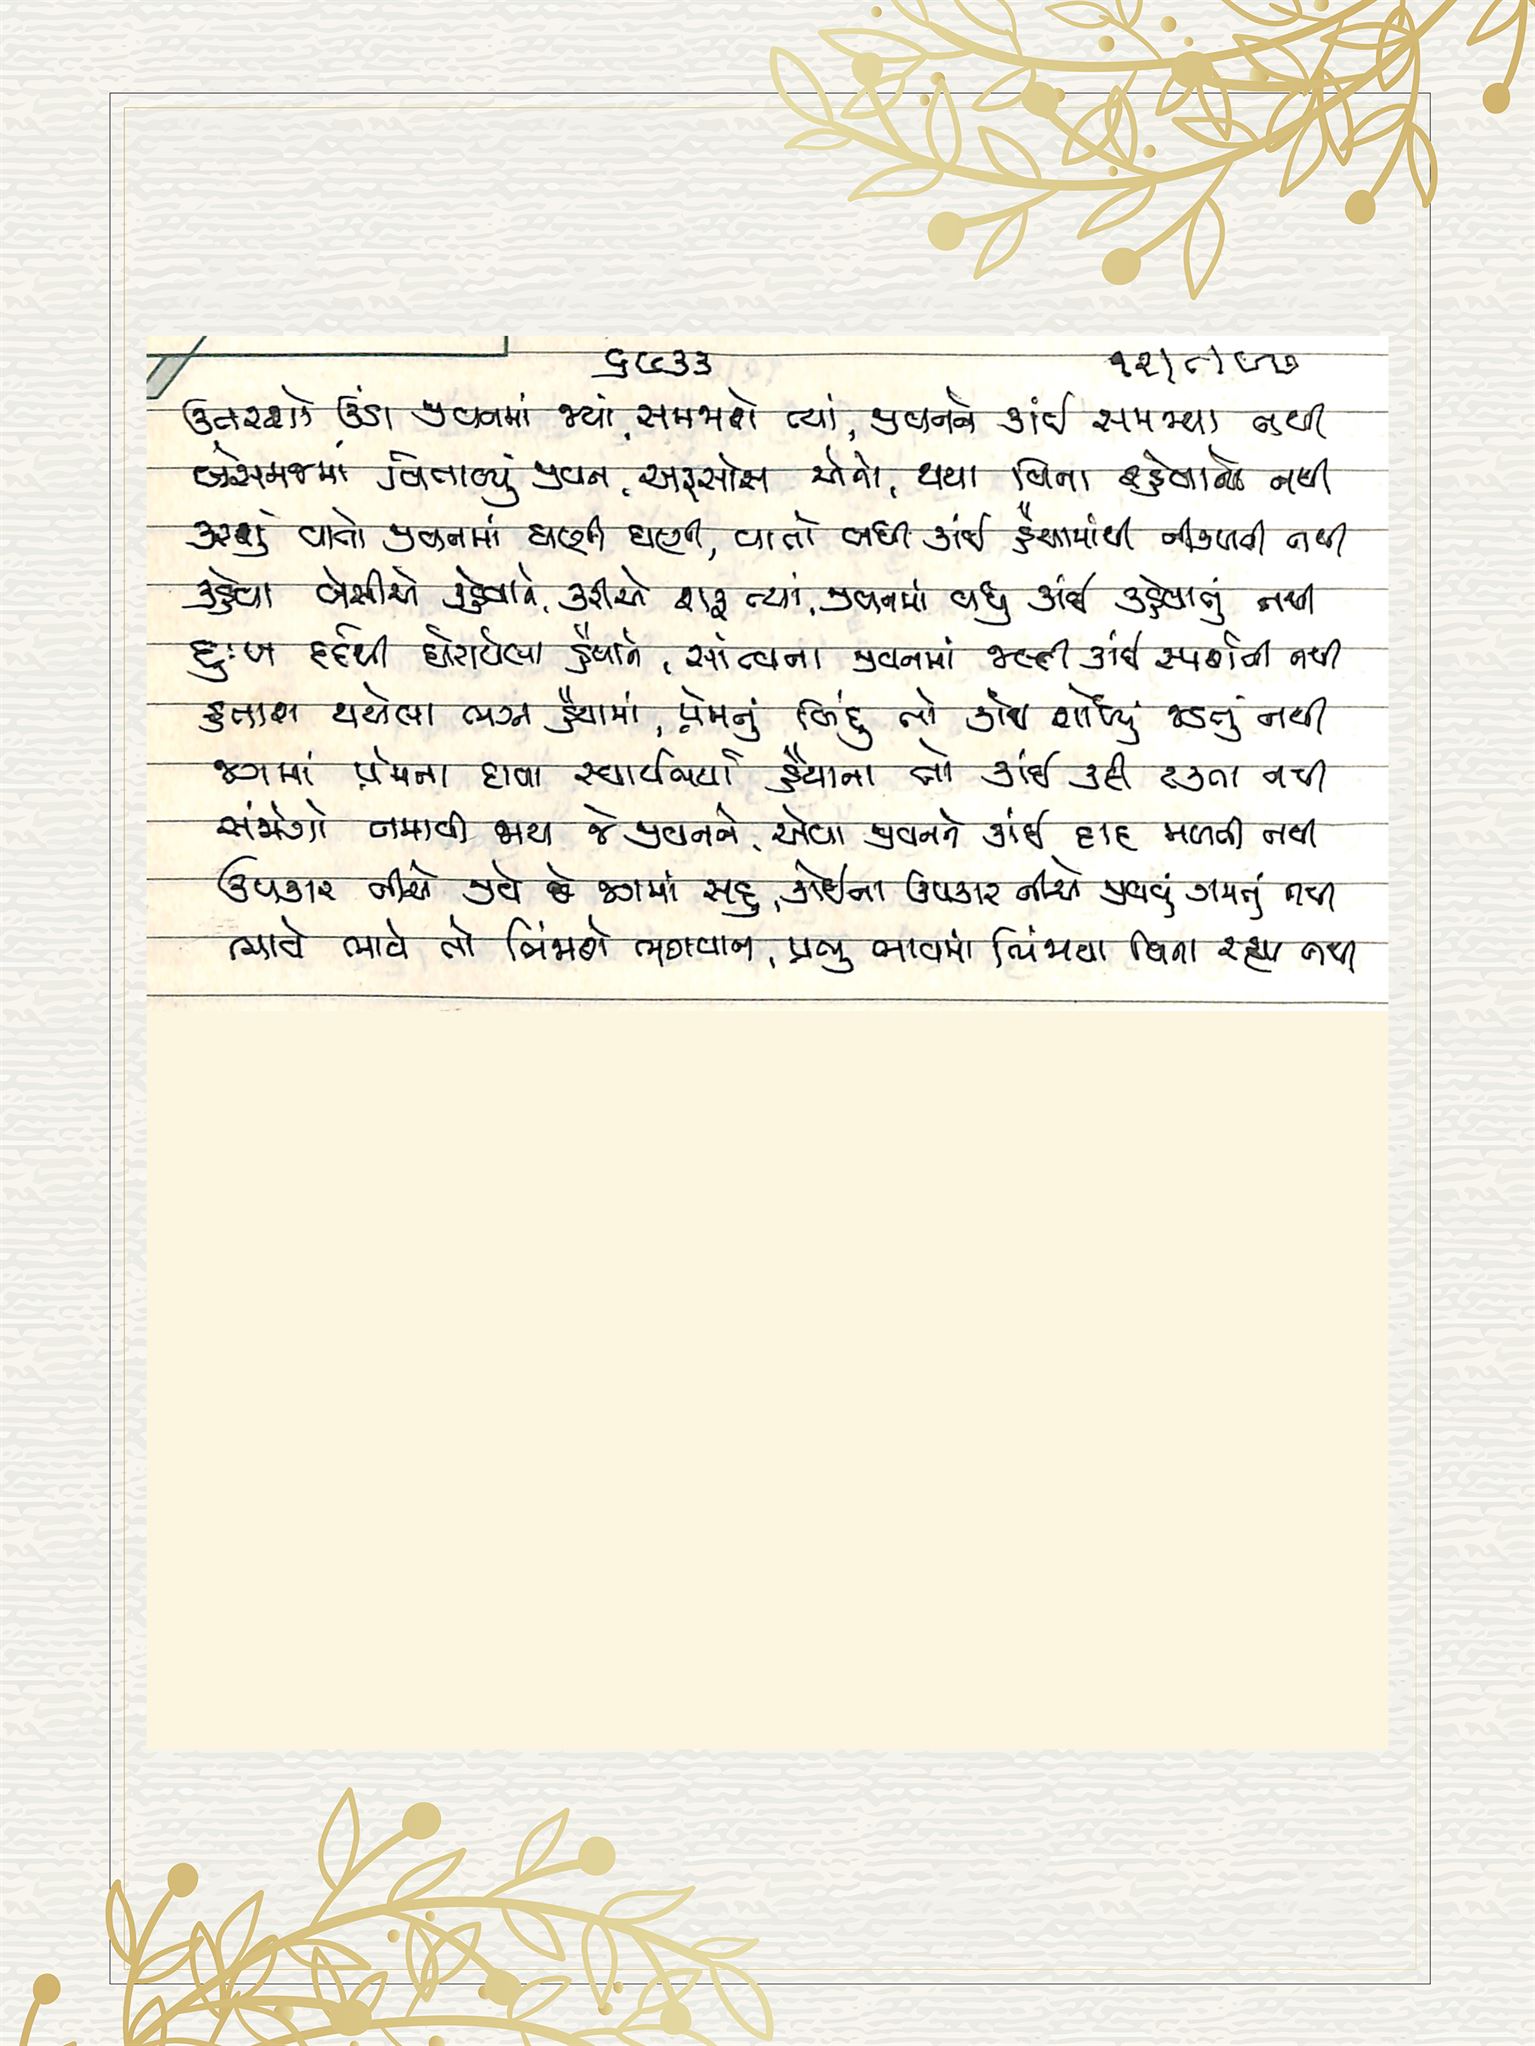 ૬૯૩૩
ઉતરશો ઉંડા જીવનમાં જ્યાં, સમજાશે ત્યાં, જીવનને કાંઈ સમજ્યા નથી
બેસમજમાં વિતાવ્યું જીવન, અફસોસ એનો, થયા વિના રહેવાનો નથી
કરશું વાતો જીવનમાં ઘણી ઘણી, વાતો બધી કાંઈ હૈયામાંથી નીકળતી નથી
કહેવા બેસીએ કહેવાને, કરીએ શરૂ ત્યાં, જીવનમાં બધુ કાંઈ કહેવાનું નથી
દુઃખ દર્દથી ઘેરાયેલા હૈયાને, સાંત્વના જીવનમાં જલ્દી કાંઈ સ્પર્શતી નથી
હતાશ થયેલા ભગ્ન હૈયામાં, પ્રેમનું બિંદુ તો કાંઈ શોધ્યું જડતું નથી
જગમાં પ્રેમના દાવા સ્વાર્થભર્યા હૈયાના તો કાંઈ કદી ટકતા નથી
સંજોગો નમાવી જાય જે જીવનને, એવા જીવનને કાંઈ દાદ મળતી નથી
ઉપકાર નીચે જીવે છે જગમાં સહુ, કોઈના ઉપકાર નીચે જીવવું ગમતું નથી
ભાવે ભાવે તો ભિંજાશે ભગવાન, પ્રભુ ભાવમાં ભિંજાયા વિના રહ્યા નથી